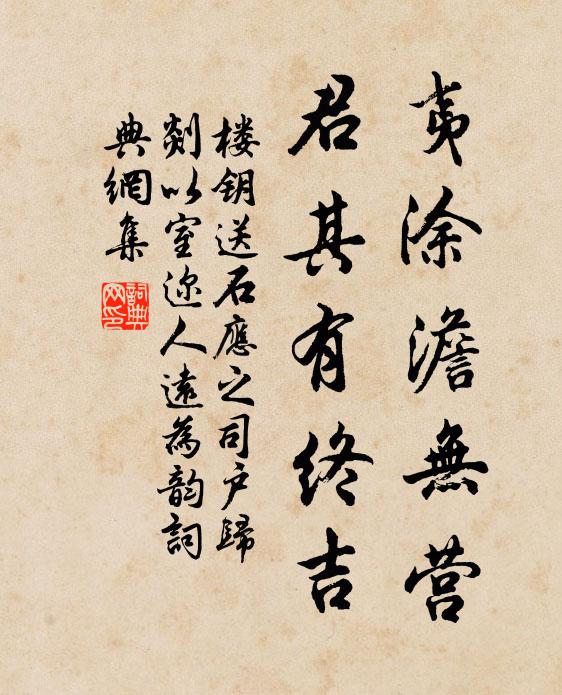 夷涂澹無营
君其有终吉
楼钥送石應之司户歸
剡以室迩人遠為韵詞
典網集
詞典网印